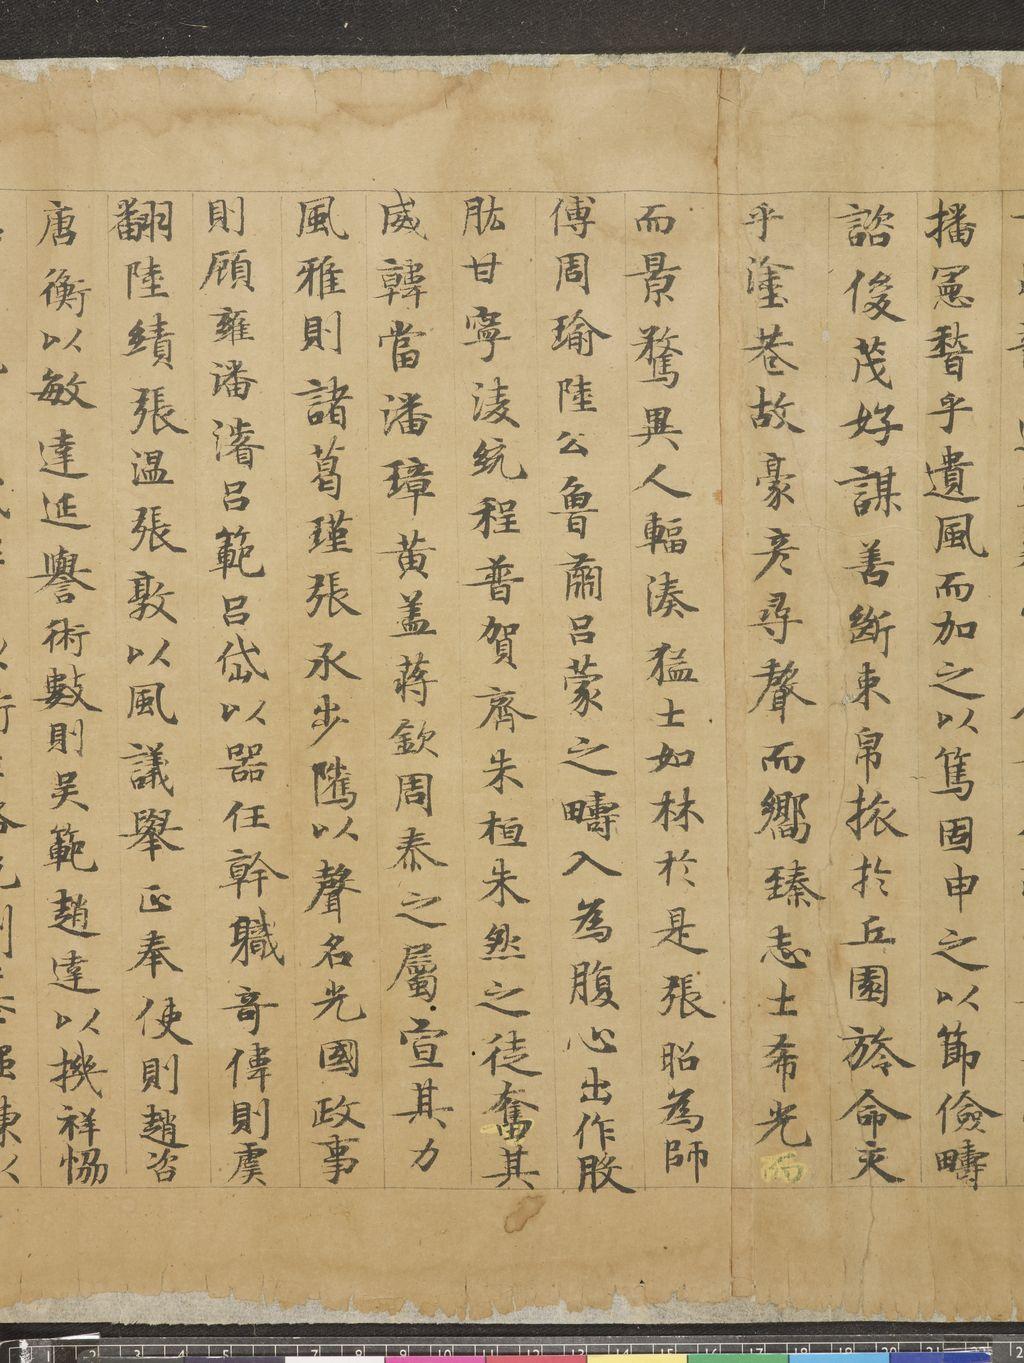 播憲稽乎遺風而加之以篤固申之以節儉疇
諮俊茂好謀善斷束帛旅於丘園旌命交
乎塗巷故豪彥尋聲而嚮臻志士希光而
而景騖異人輻湊猛士如林於是張昭為師
傅周瑜陸公魯肅呂蒙之疇入為腹心出作股
肱甘寧淩統程普賀齊朱桓朱然之徒奮其
威韓當潘璋黃盖蔣欽周泰之屬宣其力
風雅則諸葛瑾張承步騭以聲名光國政事
則顧雍潘濬呂範呂岱以器任幹職奇偉則虞
翻陸績張温張敦以風議舉正奉使則趙咨
唐衡以敏達延譽術數則吳範趙達以機祥恊